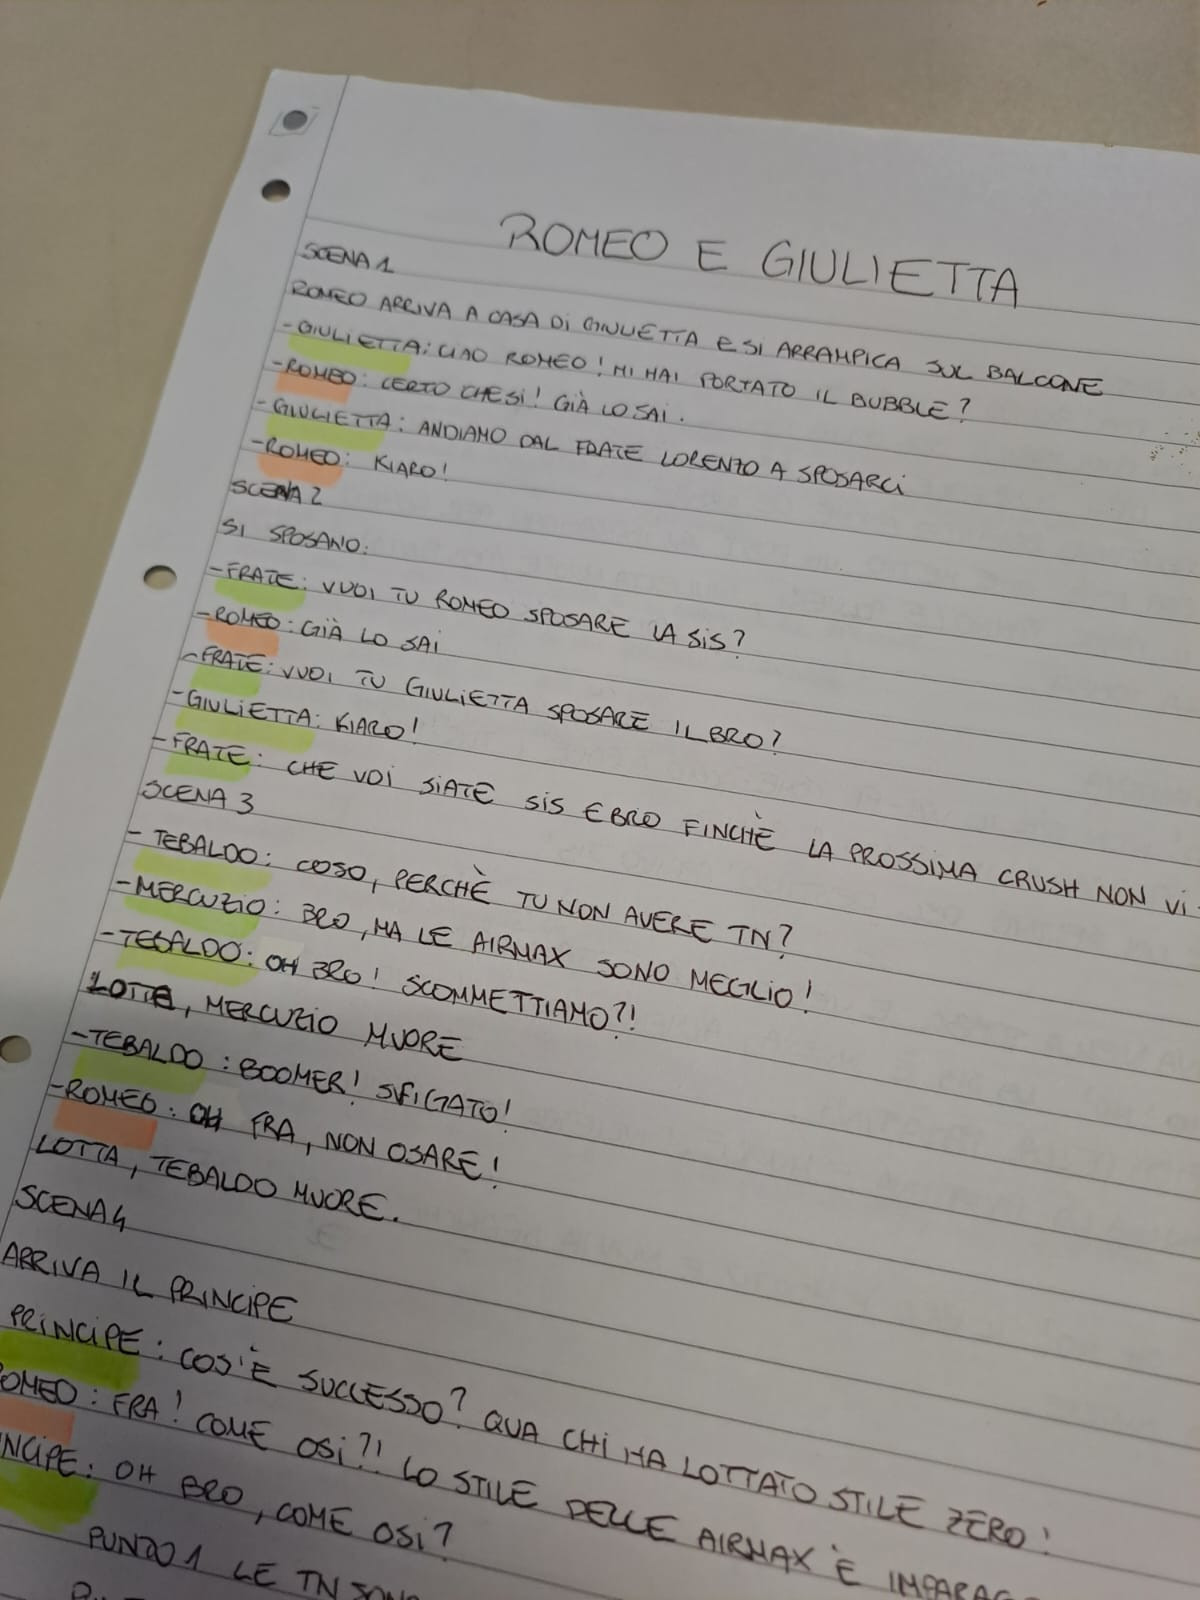 ROMEO E GIULIETTA
SCENA 1
ROMEO ARRIVA A CASA DI GIULIETTA E SI ARRAMPICA SUL BALCONE
-GIULIETTA: CIAO ROMEO! MI HAI PORTATO IL BUBBLE?
-ROMEO: CERTO CHE SI! GIÀ LO SAI.
-GIULIETTA: ANDIAMO DAL FRATE LORENZO A SPOSARCI
-ROMEO: KIARO!
SCENA 2
SI SPOSANO:
-FRATE: VUOI TU ROMEO SPOSARE LA SIS?
-ROMEO: GIÀ LO SAI
-FRATE: VUOI TU GIULIETTA SPOSARE IL BRO?
-GIULIETTA: KIARO!
-FRATE: CHE VOI SIATE SIS E BRO FINCHÈ LA PROSSIMA CRUSH NON VI
SCENA 3
- TEBALDO: COSO, PERCHÈ TU NON AVERE TN?
-MERCUZIO: BRO, MA LE AIRMAX SONO MEGLIO!
-TEBALDO: OH BRO! SCOMMETTIAMO?!
LOTTA, MERCUZIO MUORE
-TEBALDO: BOOMER! SFIGATO!
-ROMEO: OH FRA, NON OSARE!
LOTTA, TEBALDO MUORE.
SCENA 4
ARRIVA IL PRINCIPE
PRINCIPE: COS'È SUCCESSO? QUA CHI HA LOTTATO STILE ZERO!
OMEO: FRA! COME OSI?! LO STILE DELLE AIRMAX È IMPARAG
INCIPE: OH BRO, COME OSI?
PUNTO 1 LE TN SONO